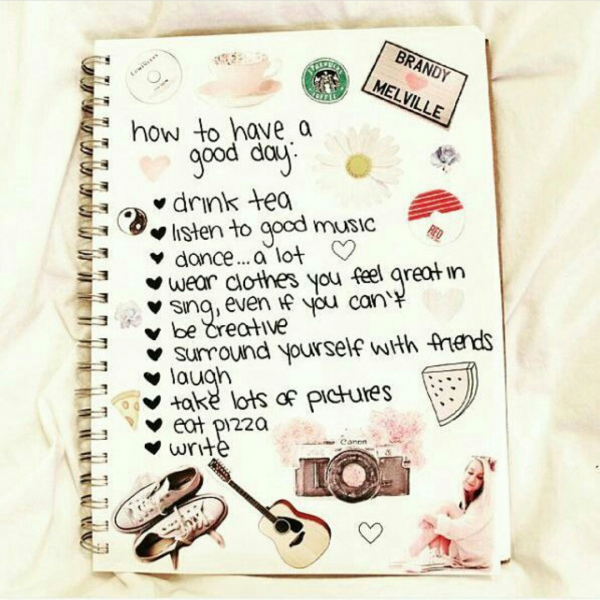 STARBUCKS
COFFEE
BRANDY
MELVILLE
how to have a
good day:
drink tea
listen to good music
dance... a lot
wear clothes you feel great in
sing, even if you can't
be creative
surround yourself with friends
laugh
take lots of pictures
eat pizza
write
RED
Canon